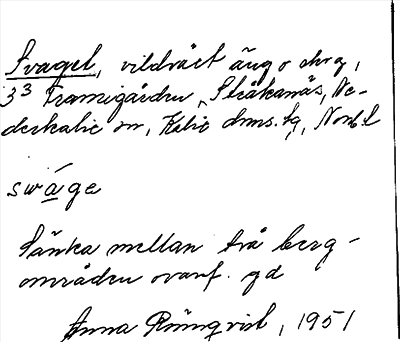 Svagel, vildväxt äng o skog,
3³ Framigården, Stråkanäs, Ne-
derkalix sn, Kalix dnms. tg, Norrb. l
swåge
Sänka mellan två berg-
områden ovanf. gd
Anna Rönnqvist, 1951